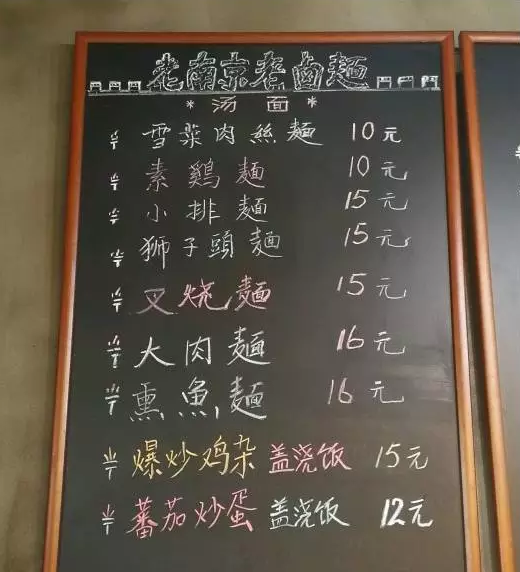 老南京老卤麵
* 汤面 *
雪菜肉絲麵 10元
素鷄麵 10元
小排麵 15元
狮子頭麵 15元
叉烧麵 15元
大肉麵 16元
熏魚麵 16元
爆炒鸡杂盖浇饭 15元
蕃茄炒蛋盖浇饭 12元